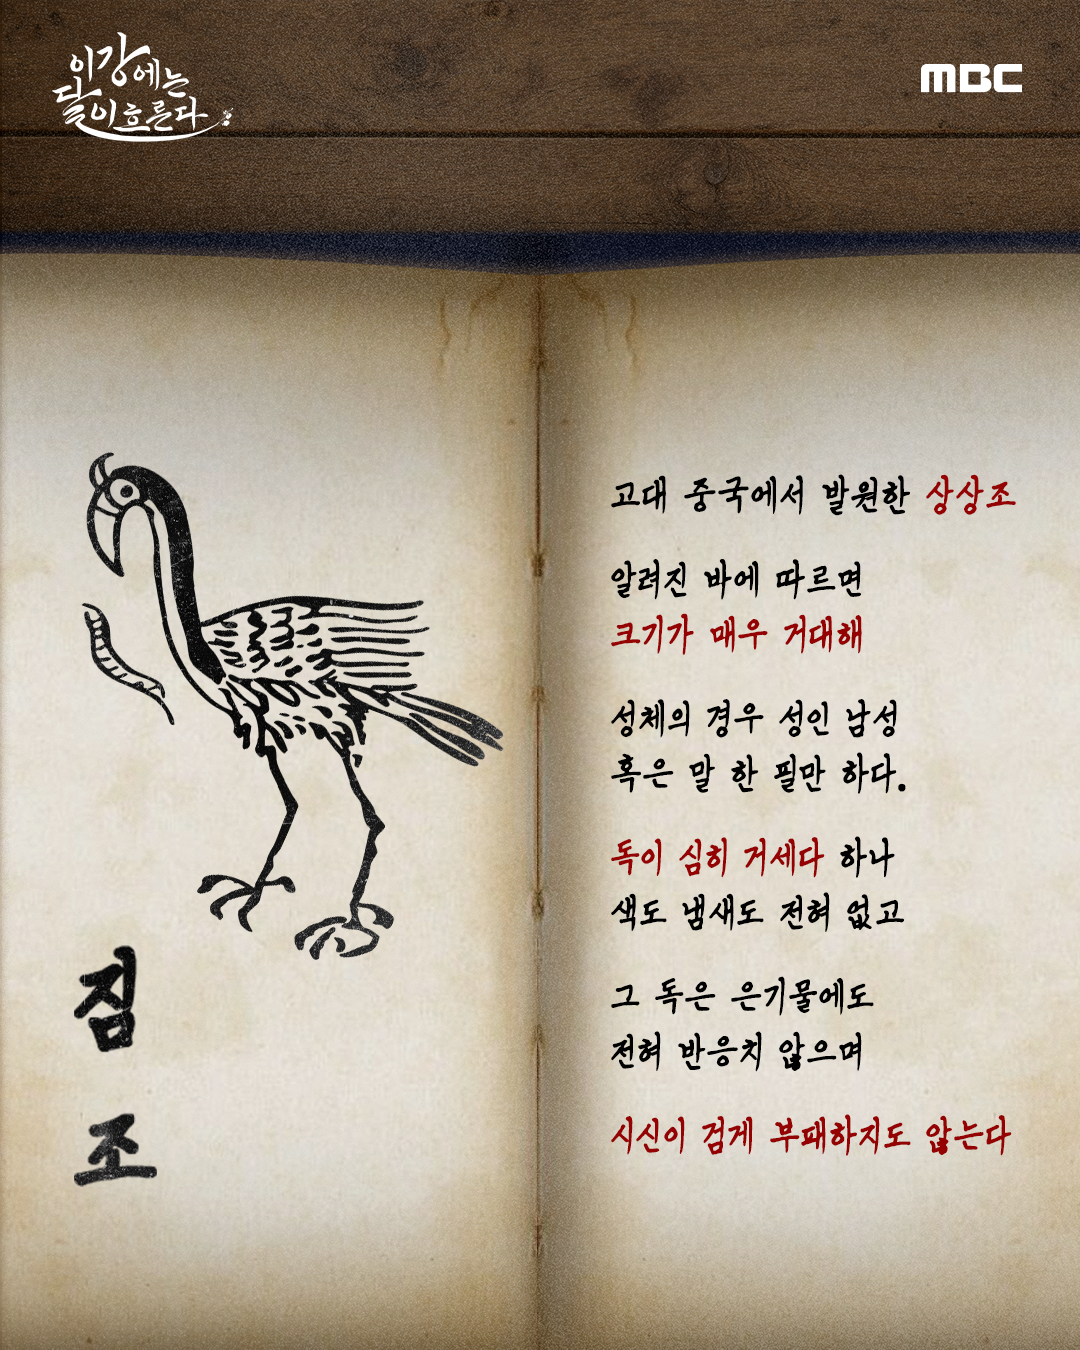 이 강에는
달이 흐른다
MBC
짐
조
고대 중국에서 발원한 상상조
알려진 바에 따르면
크기가 매우 거대해
성체의 경우 성인 남성
혹은 말 한 필만 하다.
독이 심히 거세다 하나
색도 냄새도 전혀 없고
그 독은 은기물에도
전혀 반응치 않으며
시신이 검게 부패하지도 않는다